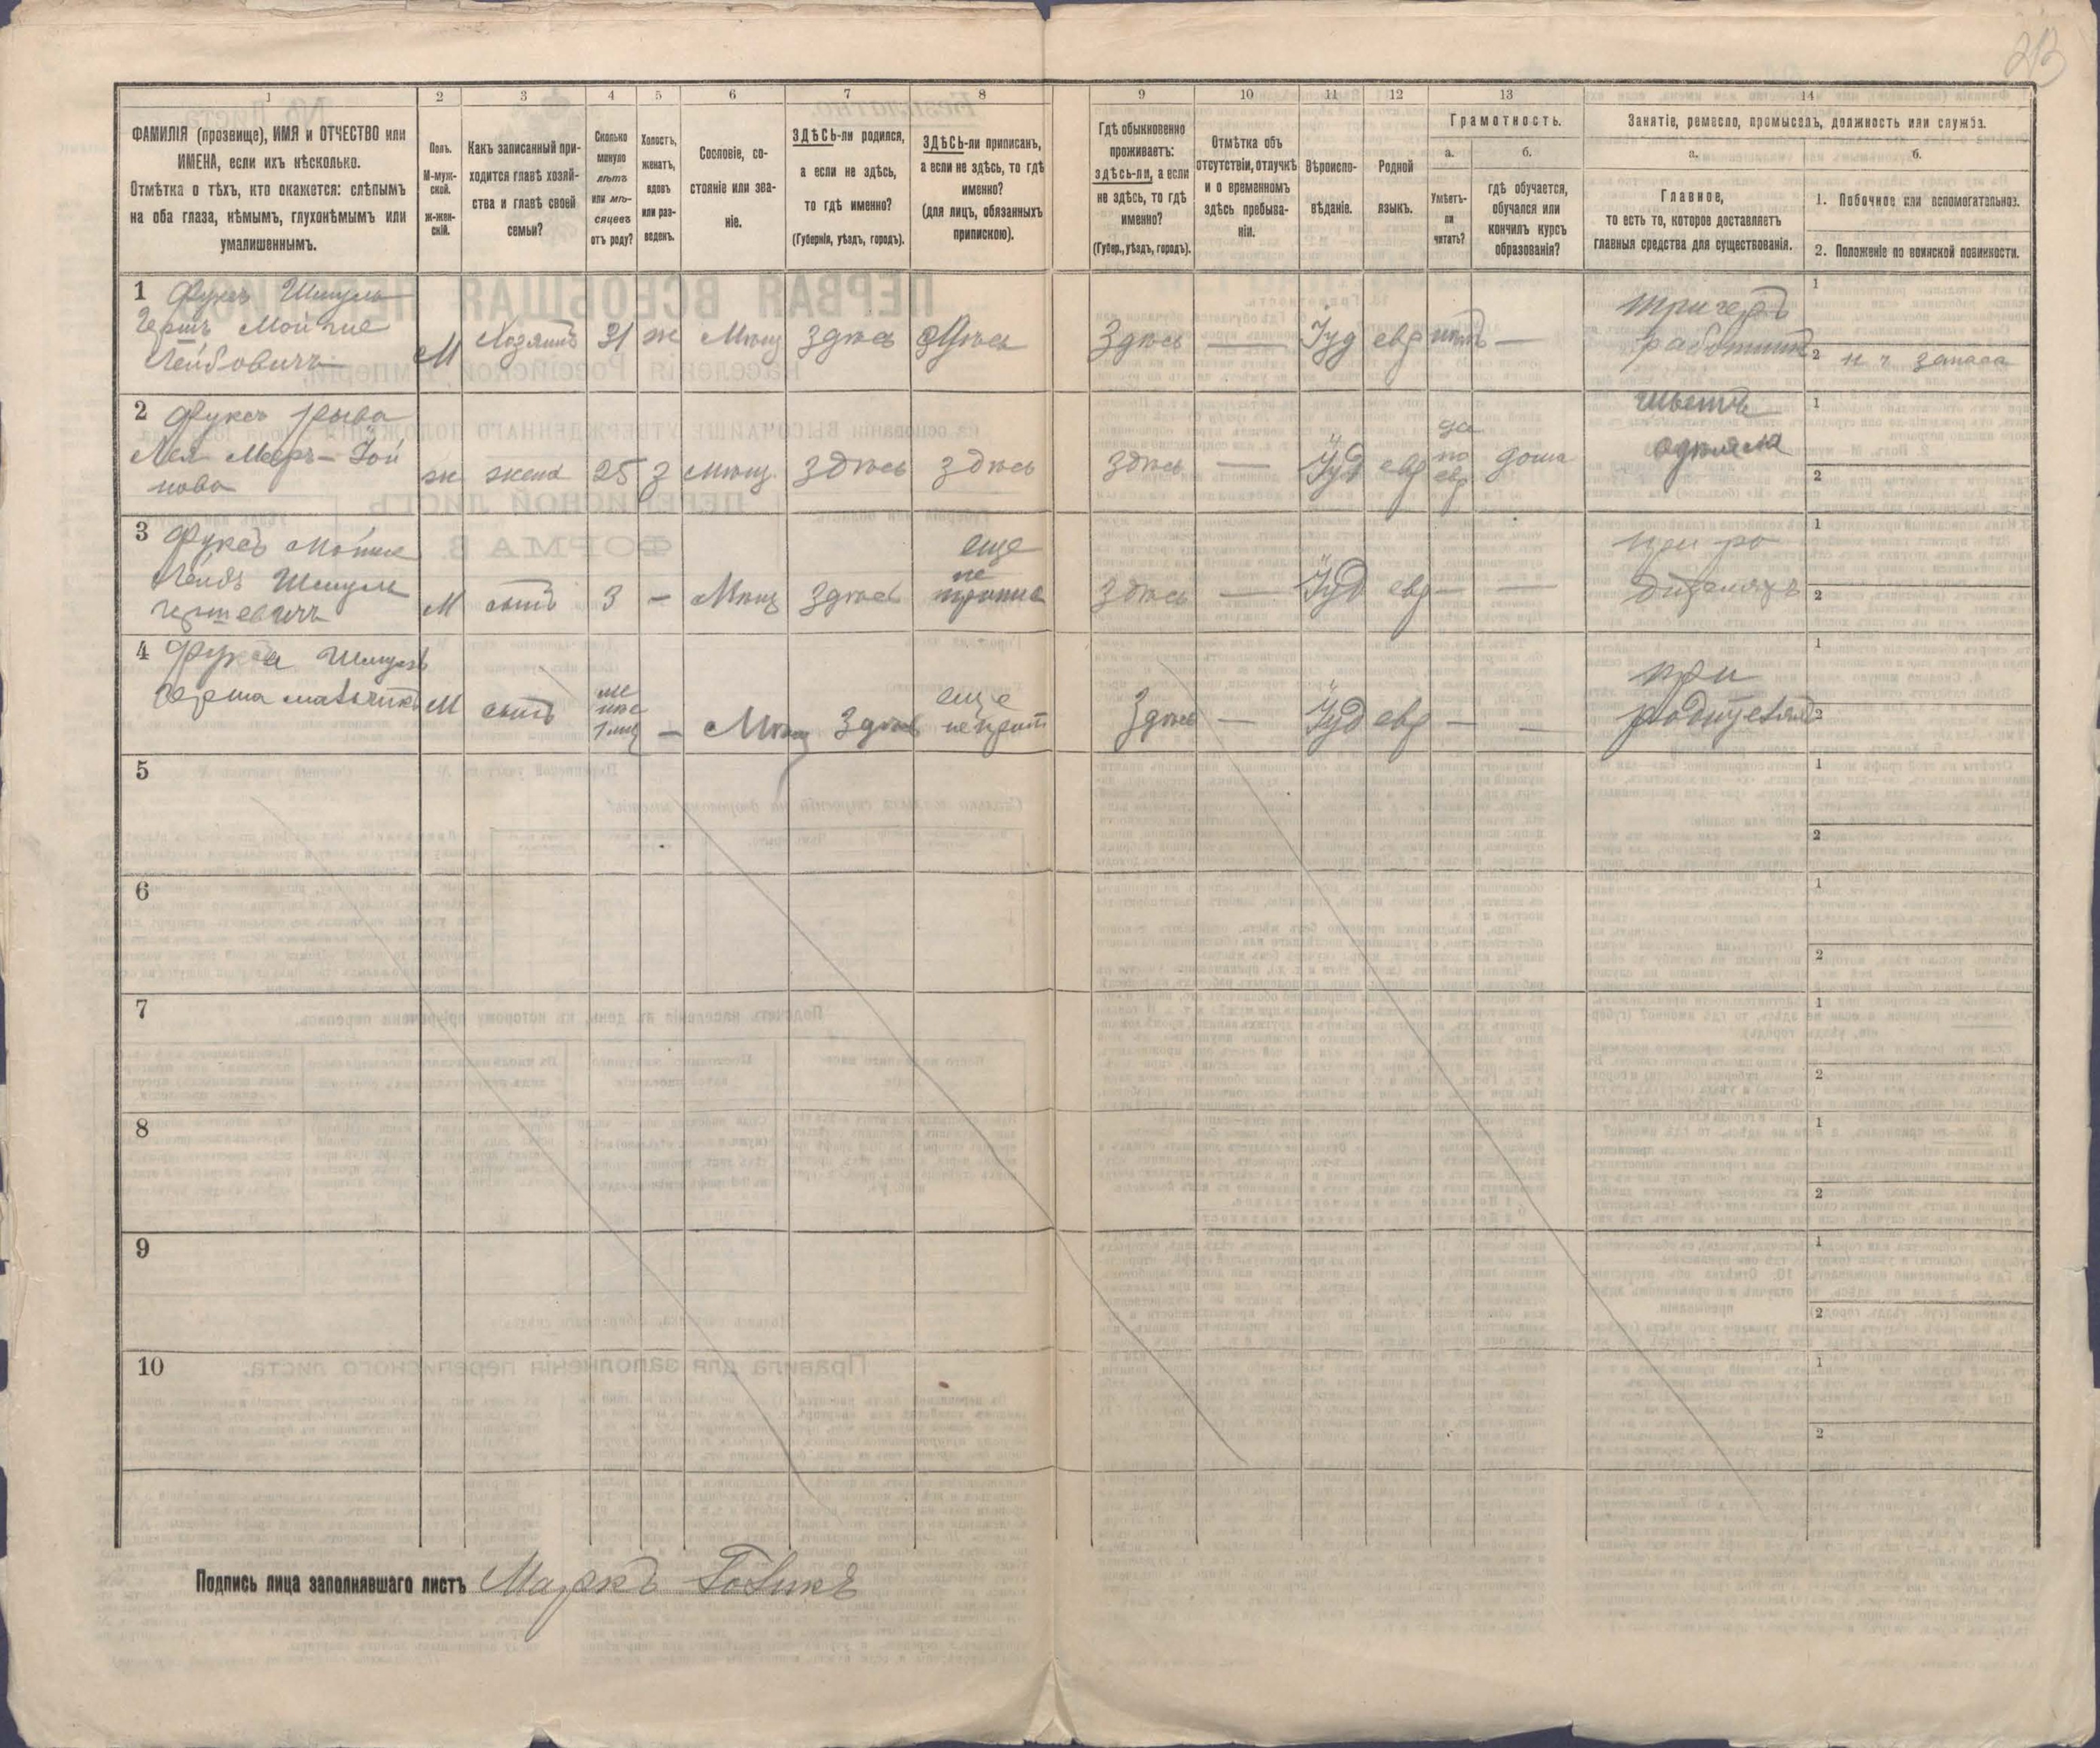 213
1 2 3 4 5 6 7 8 9 10 11 12 13 14
ФАМИЛІЯ (прозвище), ИМЯ и ОТЧЕСТВО или
ИМЕНА, если ихъ нѣсколько.
Отмѣтка о тѣхъ, кто окажется: слѣпымъ
на оба глаза, нѣмымъ, глухонѣмымъ или
умалишеннымъ.
Полъ.
М-муж-
ской.
ж-жен-
скій.
Какъ записанный при-
ходится главѣ хозяй-
ства и главѣ своей
семьи?
Сколько
минуло
лѣтъ
или мѣ-
сяцевъ
отъ роду?
Холостъ,
женатъ,
вдовъ
или раз-
веденъ.
Сословіе, со-
стояніе или зва-
ніе.
ЗДѢСЬ-ли родился,
а если не здѣсь,
то гдѣ именно?
(Губернія, уѣздъ, городъ).
ЗДѢСЬ-ли приписанъ,
а если не здѣсь, то гдѣ
именно?
(для лицъ, обязанныхъ
припискою).
Гдѣ обыкновенно
проживаетъ:
здѣсь-ли, а если
не здѣсь, то гдѣ
именно?
(Губер., уѣздъ, городъ).
Отмѣтка объ
отсутствіи, отлучкѣ
и о временномъ
здѣсь пребыва-
ніи.
Вѣроиспо-
вѣданіе.
Родной
языкъ.
Грамотность.
а.
Умѣетъ-
ли
читать?
б.
гдѣ обучается,
обучался или
кончилъ курсъ
образованія?
Занятіе, ремесло, промыселъ, должность или служба.
а.
Главное,
то есть то, которое доставляетъ
главныя средства для существованія.
б.
1. Побочное или вспомогательное.
2. Положеніе по воинской повинности.
1 Фуксъ Шмуль
Гершъ Мойше
Лейбовичъ
М Хозяинъ 31 ж Мѣщ Здѣсь Здѣсь
Здѣсь — Іуд евр нѣтъ —
1
2 н ч запаса
2 Фуксъ Рыва
Лея Меер-
нова
ж жена 25 з мѣщ. здѣсь здѣсь
здѣсь — Іуд евр да по евр дома
одѣяла
1
2
3 Фуксъ Мойше
Лейбъ Шмуль
Гершевичъ
М сынъ 3 — Мѣщ Здѣсь еще не припис
здѣсь — Іуд евр — —
при ро
дителяхъ
1
2
4 Фукса Шмуль
Герша мальчикъ
М сынъ 1 мѣс — Мѣщ Здѣсь еще не
Здѣсь — Іуд евр — —
при
родителях
1
2
5
1
2
6
1
2
7
1
2
8
1
2
9
1
2
10
1
2
Подпись лица заполнявшаго листъ Маркъ